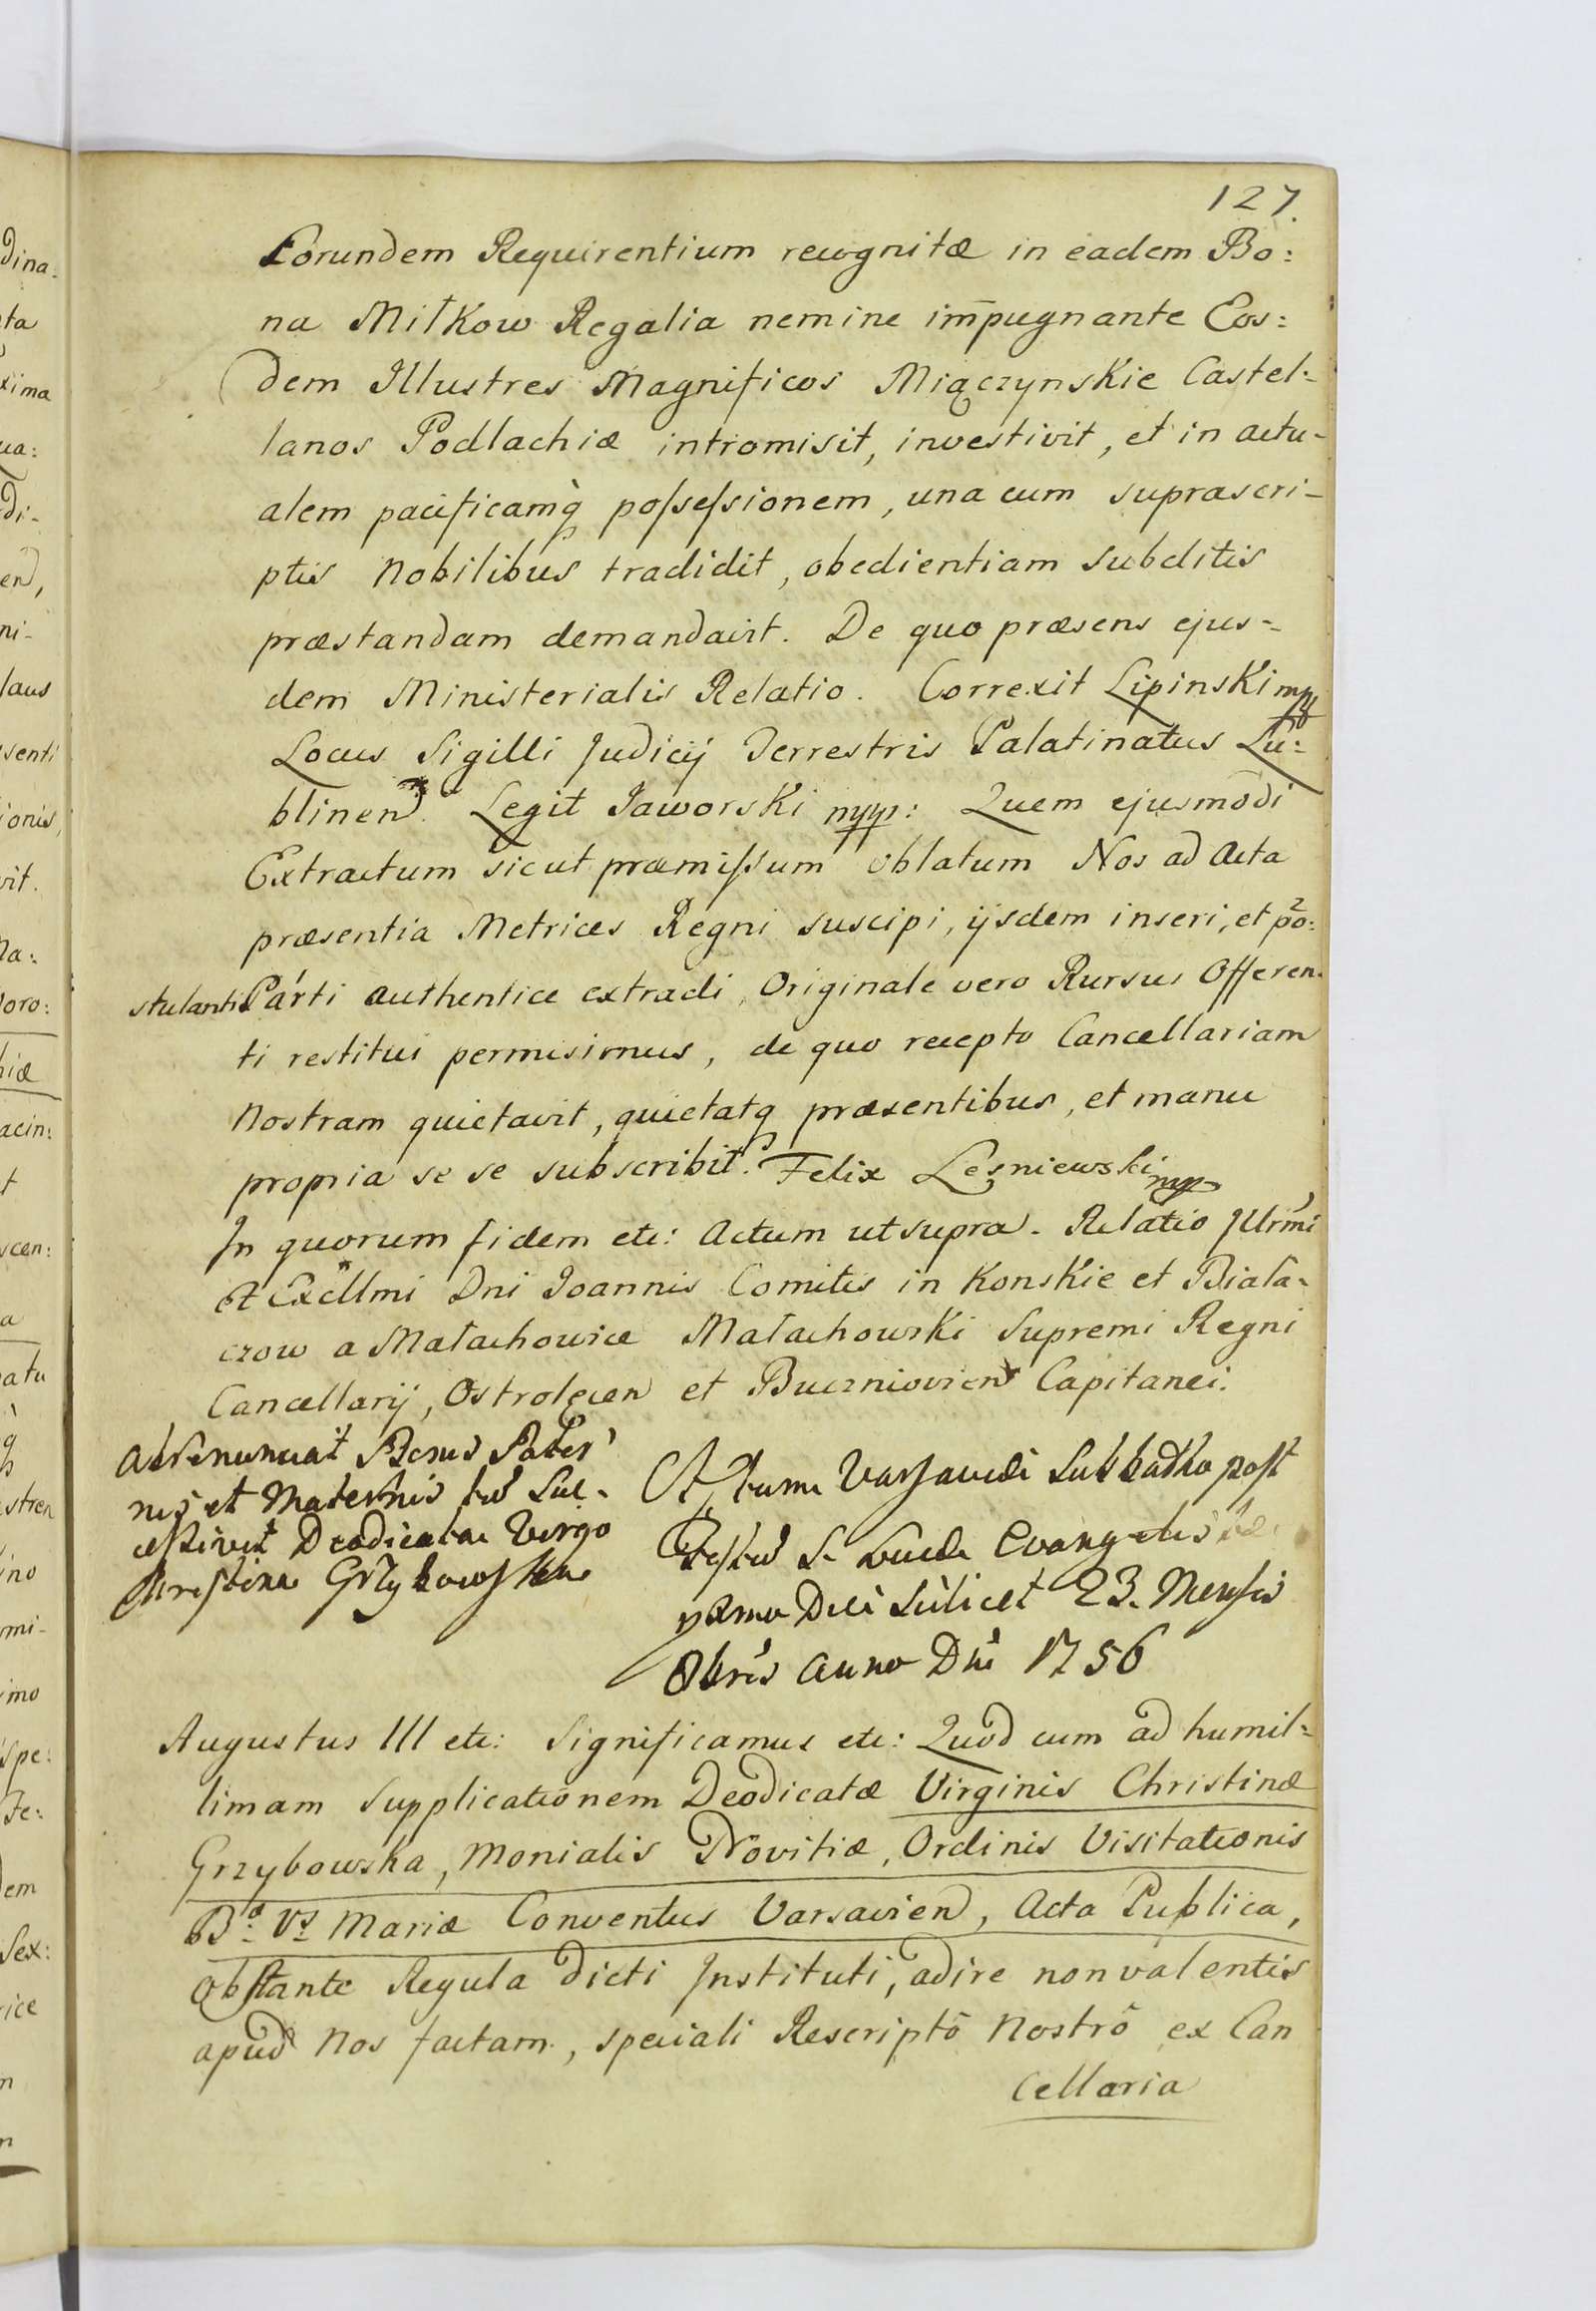 127.
Eorundem Requirentium recognitæ in eadem Bo:
na Miłkow Regalia nemine im̄pugnante Eos:
dem Illustres Magnificos Miączynskie Castel:
lanos Podlachiæ intromisit, investivit, et in actu-
alem pacificamq̀ possessionem, una cum suprascri-
ptis Nobilibus tradidit, obedientiam subditis
præstandam demandavit. De quo præsens ejus-
dem Ministerialis Relatio. Correxit Lipinski mp
Locus Sigilli Judicij Terrestris Palatinatus Lu:
blinen. Legit Jaworski mpp: Quem ejusmōdi
Extractum sicut præmissum oblatum Nos ad Acta
præsentia Metrices Regni suscipi, ijsdem inseri, et po:
stulanti Parti authentice extradi, Originale vero Rursus Offeren-
ti restitui permisimus, de quo recepto Cancellariam
Nostram quietavit, quietatq præsentibus, et manu
propria se se subscribit. Felix Leśniewski mp
In quorum fidem etc: Actum ut supra. Relatio Illrmi
et Excllmi Dni Joannis Comitis in Konskie et Biała-
czow a Małachowice Małachowski Supremi Regni
Cancellarij, Ostrolęcen et Buczniovien Capitanei.
Abrenunciat Bonis Pater
nis et Maternis tū Suc-
cessivis Deodicatæ Virgo
Christina Grzybowska
Actum Varsaviæ Sabbatho post
Festū S. Lucæ Evangelistæ
pxmo Die scilicet 23. Mensis
Obris Anno Dni 1756
Augustus III etc: Significamus etc: Quod cum ad humil:
limam Supplicationem Deodicatæ Virginis Christinæ
Grzybowska, Monialis Novitiæ, Ordinis Visitationis
B. V. Mariæ Conventus Varsavien, Acta Publica,
obstante Regula dicti Instituti, adire non valentis
apud Nos factam, speciali Rescriptô Nostrô ex Can
cellaria